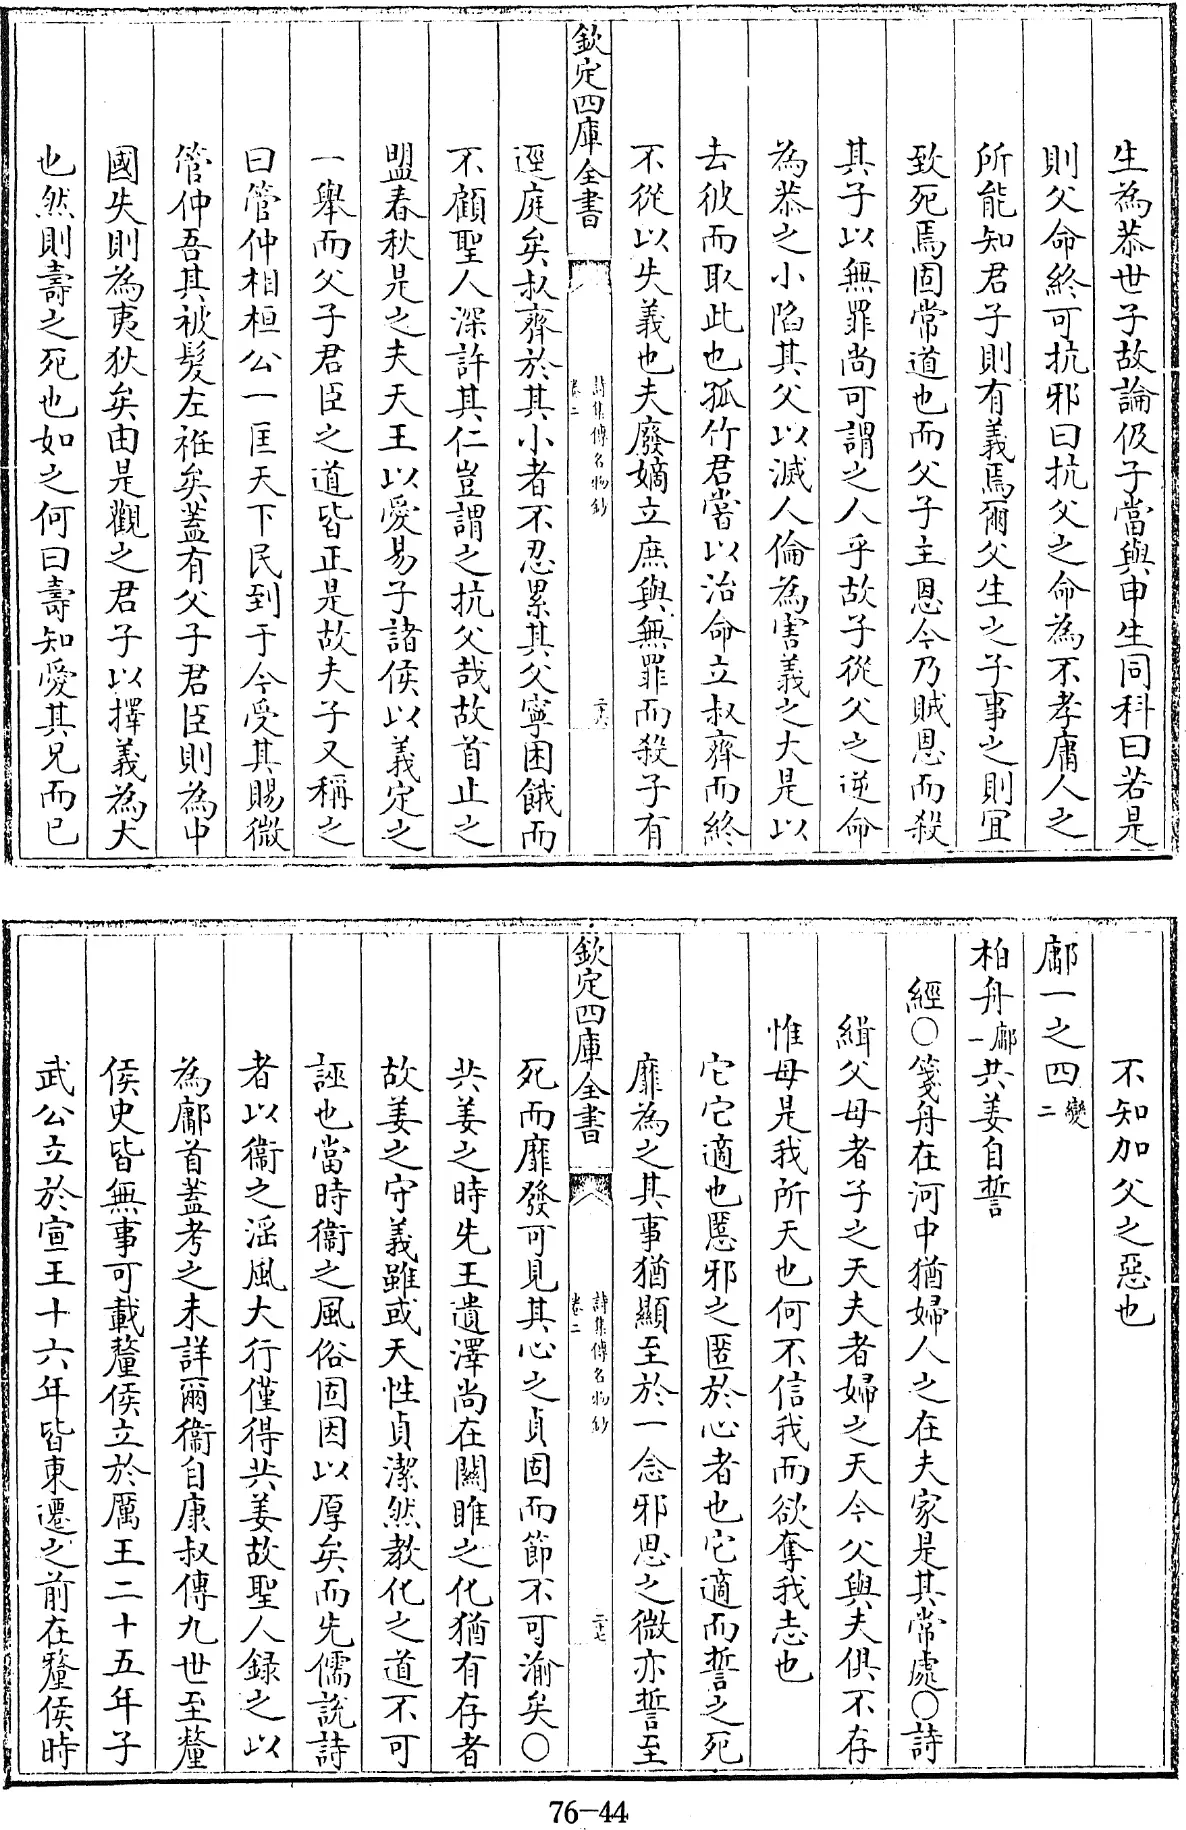 生為恭世子故論伋子當與申生同科曰若是
則父命終可抗邪曰抗父之命為不孝庸人之
所能知君子則有義焉爾父生之子事之則宜
致死焉固常道也而父子主恩今乃賊恩而殺
其子以無罪尚可謂之人乎故子從父之逆命
為恭之小陷其父以滅人倫為害義之大是以
去彼而取此也孤竹君嘗以治命立叔齊而終
不從以失義也夫廢嫡立庶與無罪而殺子有
欽定四庫全書
詩集傳名物鈔
卷二
二十六
逕庭矣叔齊於其小者不忍累其父寧困餓而
不顧聖人深許其仁豈謂之抗父哉故首止之
盟春秋是之夫天王以愛易子諸侯以義定之
一舉而父子君臣之道皆正是故夫子又稱之
曰管仲相桓公一匡天下民到于今受其賜微
管仲吾其被髮左袵矣蓋有父子君臣則為中
國失則為夷狄矣由是觀之君子以擇義為大
也然則壽之死也如之何曰壽知愛其兄而已
不知加父之惡也
鄘一之四變二
柏舟鄘一共姜自誓
經○箋舟在河中猶婦人之在夫家是其常處○詩
緝父母者子之天夫者婦之天今父與夫俱不存
惟母是我所天也何不信我而欲奪我志也
它它適也慝邪之匿於心者也它適而誓之死
靡為之其事猶顯至於一念邪思之微亦誓至
欽定四庫全書
詩集傳名物鈔
卷二
二十七
死而靡發可見其心之貞固而節不可渝矣○
共姜之時先王遺澤尚在關雎之化猶有存者
故姜之守義雖或天性貞潔然教化之道不可
誣也當時衞之風俗固因以厚矣而先儒說詩
者以衞之淫風大行僅得共姜故聖人録之以
為鄘首蓋考之未詳爾衞自康叔傳九世至釐
侯史皆無事可載釐侯立於厲王二十五年子
武公立於宣王十六年皆東遷之前在釐侯時
76-44